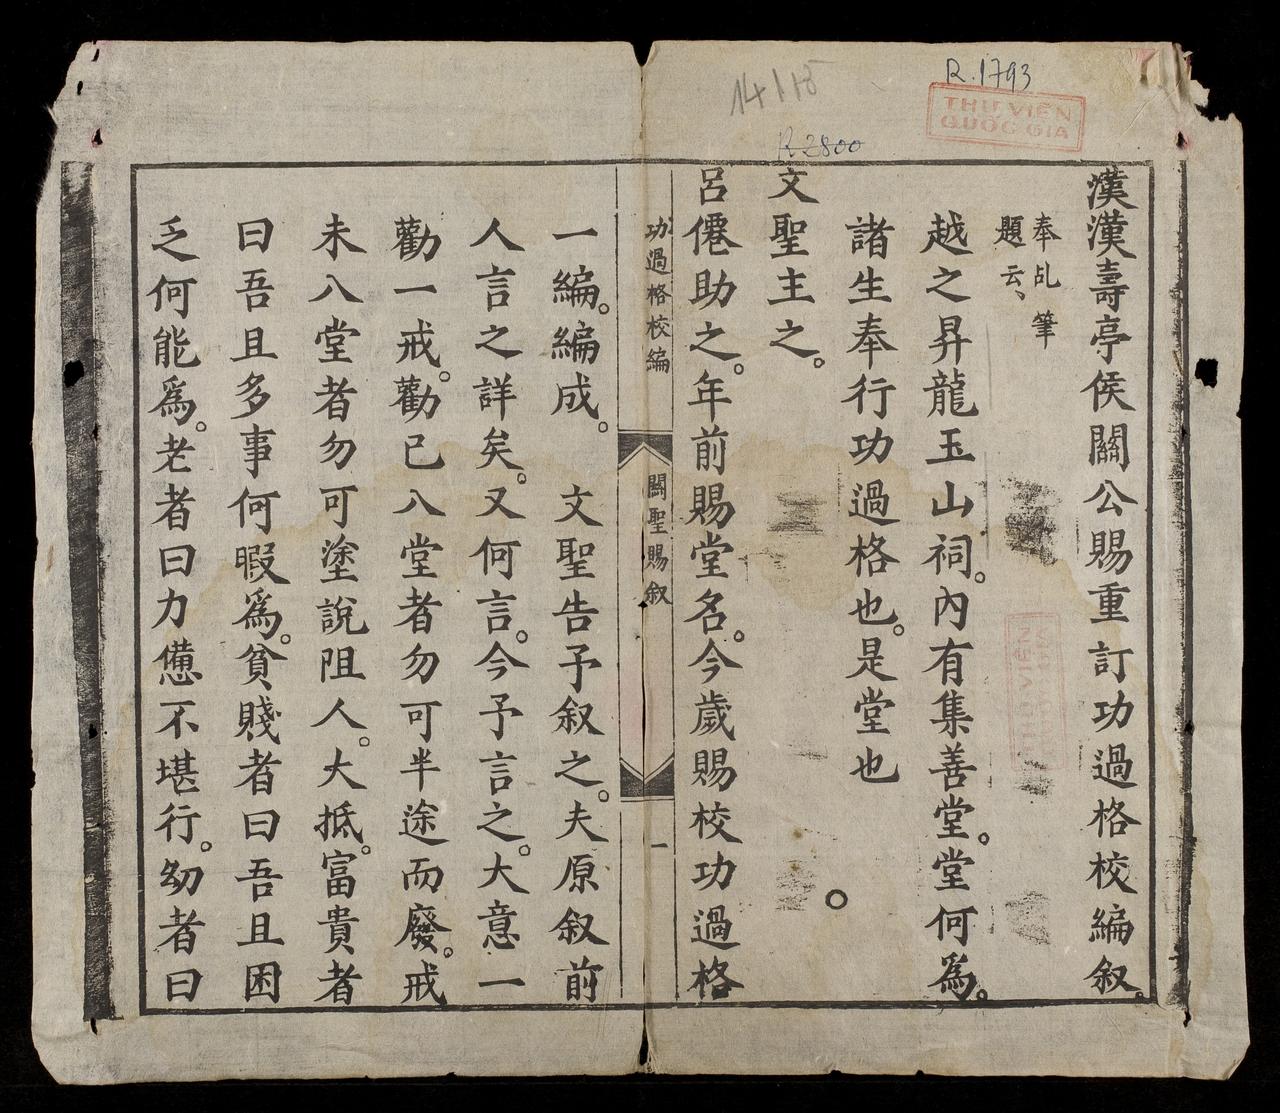 R.1793
14118
THƯ VIỆN
QUỐC GIA
R 2800
漢漢壽亭侯關公賜重訂功過格校編叙。
奉乩筆
題云、
越之昇龍玉山祠。內有集善堂。堂何為。
諸生奉行功過格也。是堂也
文聖主之。
呂僊助之。年前賜堂名。今歲賜校功過格
功過格校編 關聖賜叙 一
一編。編成。 文聖告予叙之。夫原叙前
人言之詳矣。又何言。今予言之。大意一
勸一戒。勸已八堂者勿可半途而廢。戒
未八堂者勿可塗說阻人。大抵。富貴者
曰吾且多事何暇爲。貧賤者曰吾且困
乏何能爲。老者曰力憊不堪行。幼者曰
THƯ VIỆN